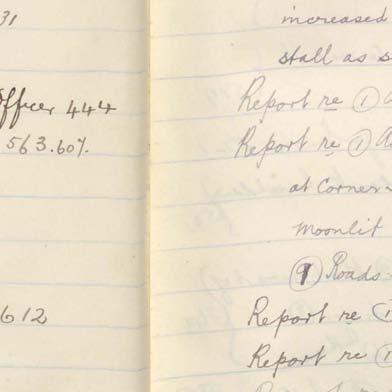 31
Officer 444
563.607.
612
increased
stall as s
Report re ① a
Report re ① a
at Corner
Moonlit
⑨ Roads
Report re ①
Report re ①